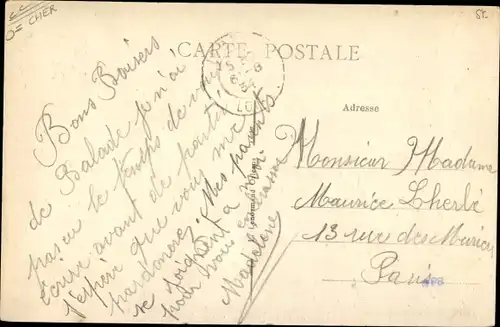 O= CHER
CARTE POSTALE
Bons Baisers
de Balade je n'ai
pas eu le temps de vous
écrire avant de partir
j'espère que vous me
pardonnerez Mes parents
se joignent a moi
pour vous
Madeleine
Adresse
Monsieur Madame
Maurice Lherbé
13 rue des Muriers
Paris